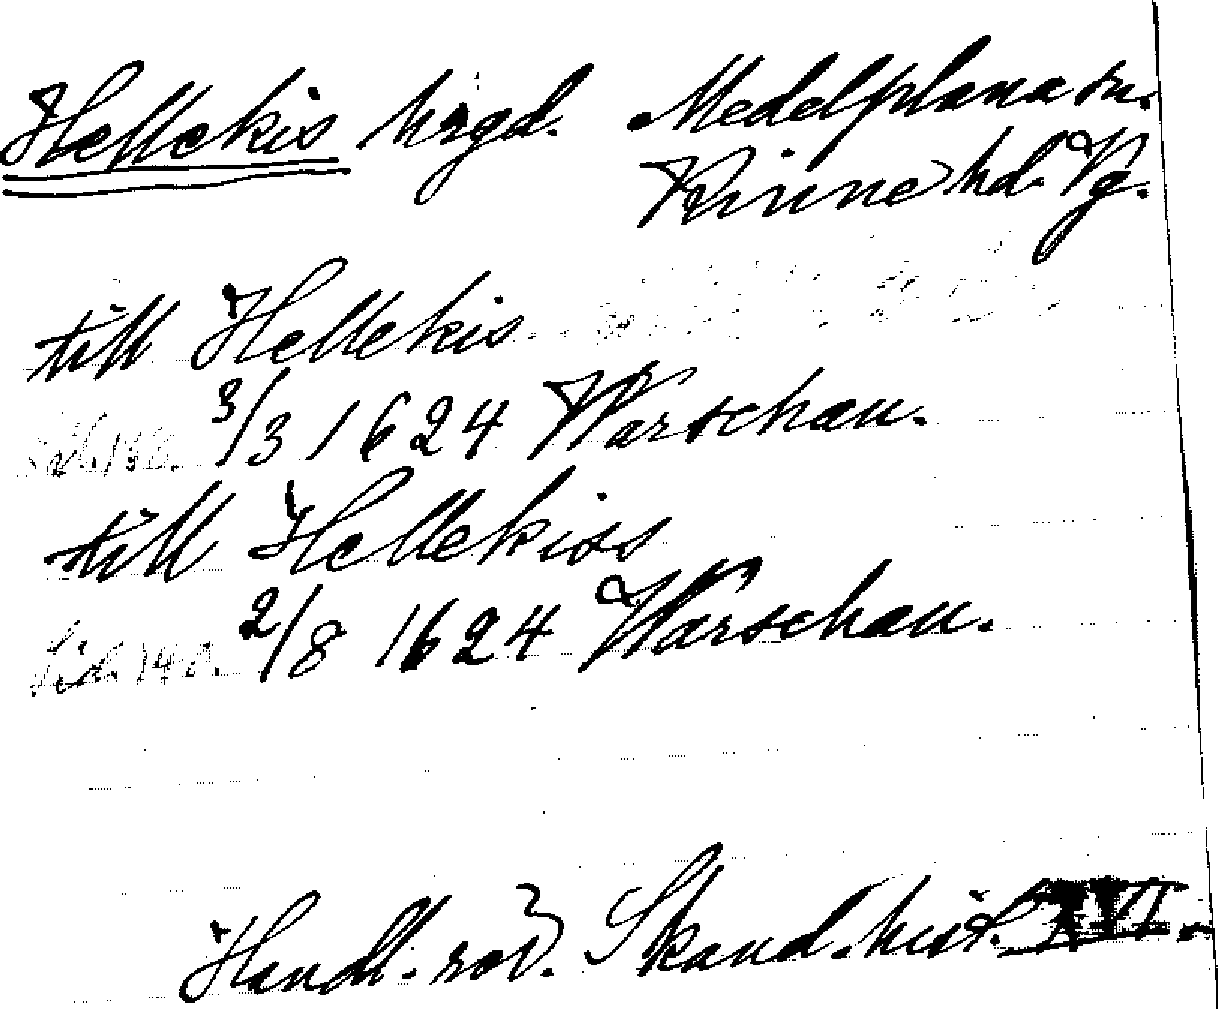 Hellekis hrgd. Medelplana sn.
Kinne hd. Vg.
till Hellekis
3/3 1624 Warschau.
till Hellekiss
Sid. 140. 2/8 1624 Warschau.
Handl. rör. Skand. hist. XVI.